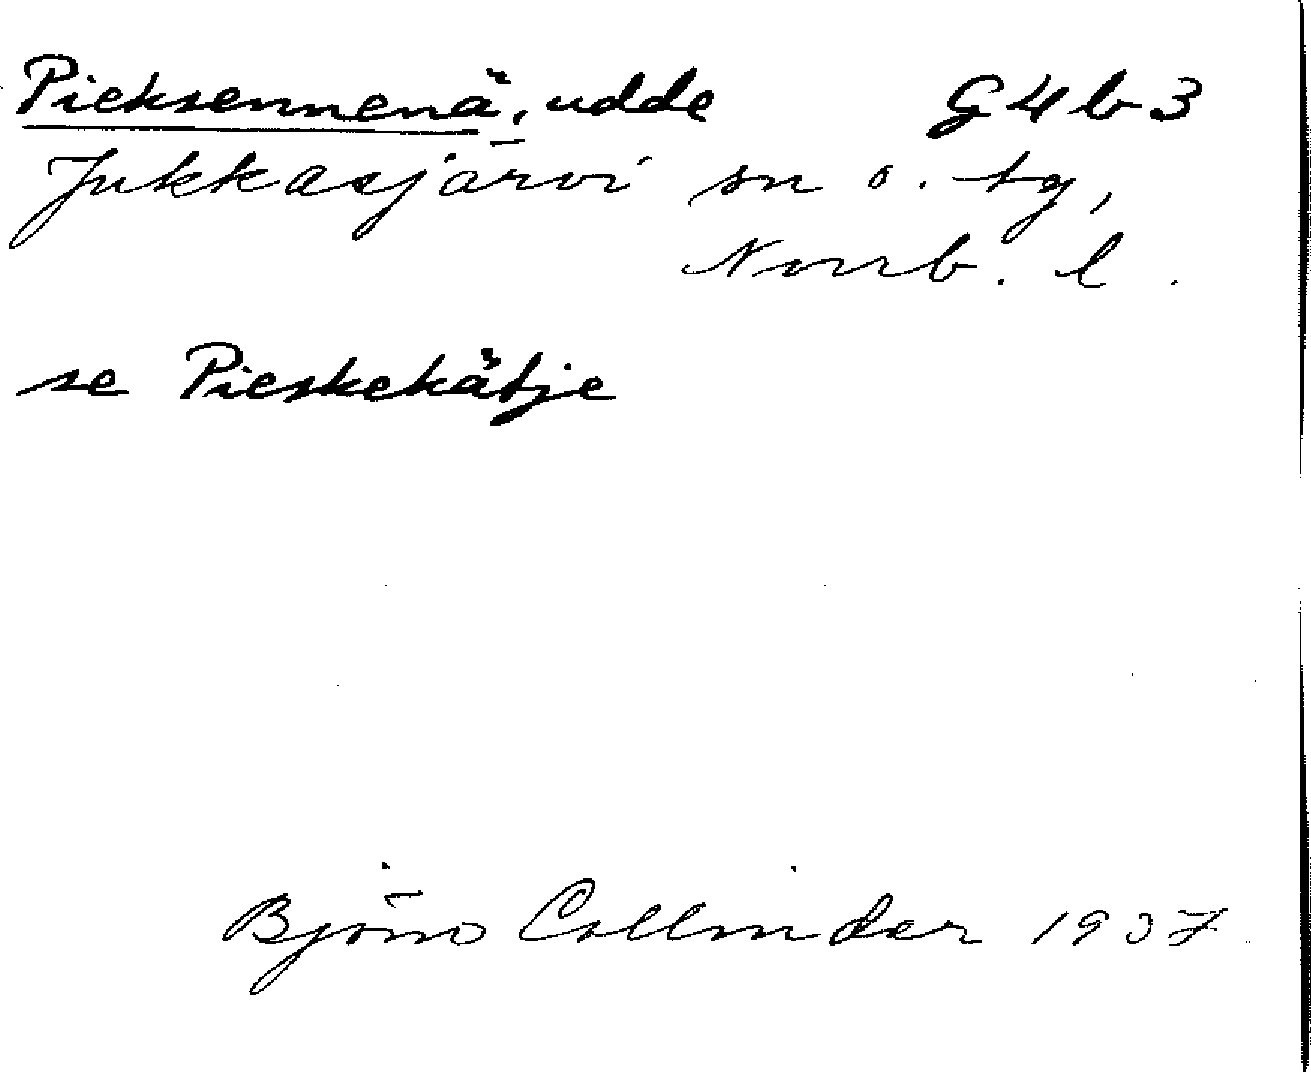 Pieksennenä, udde G4b3
Jukkasjärvi sn o. tg,
Norrb. l.
se Pieskekätje
Björn Collinder 1937